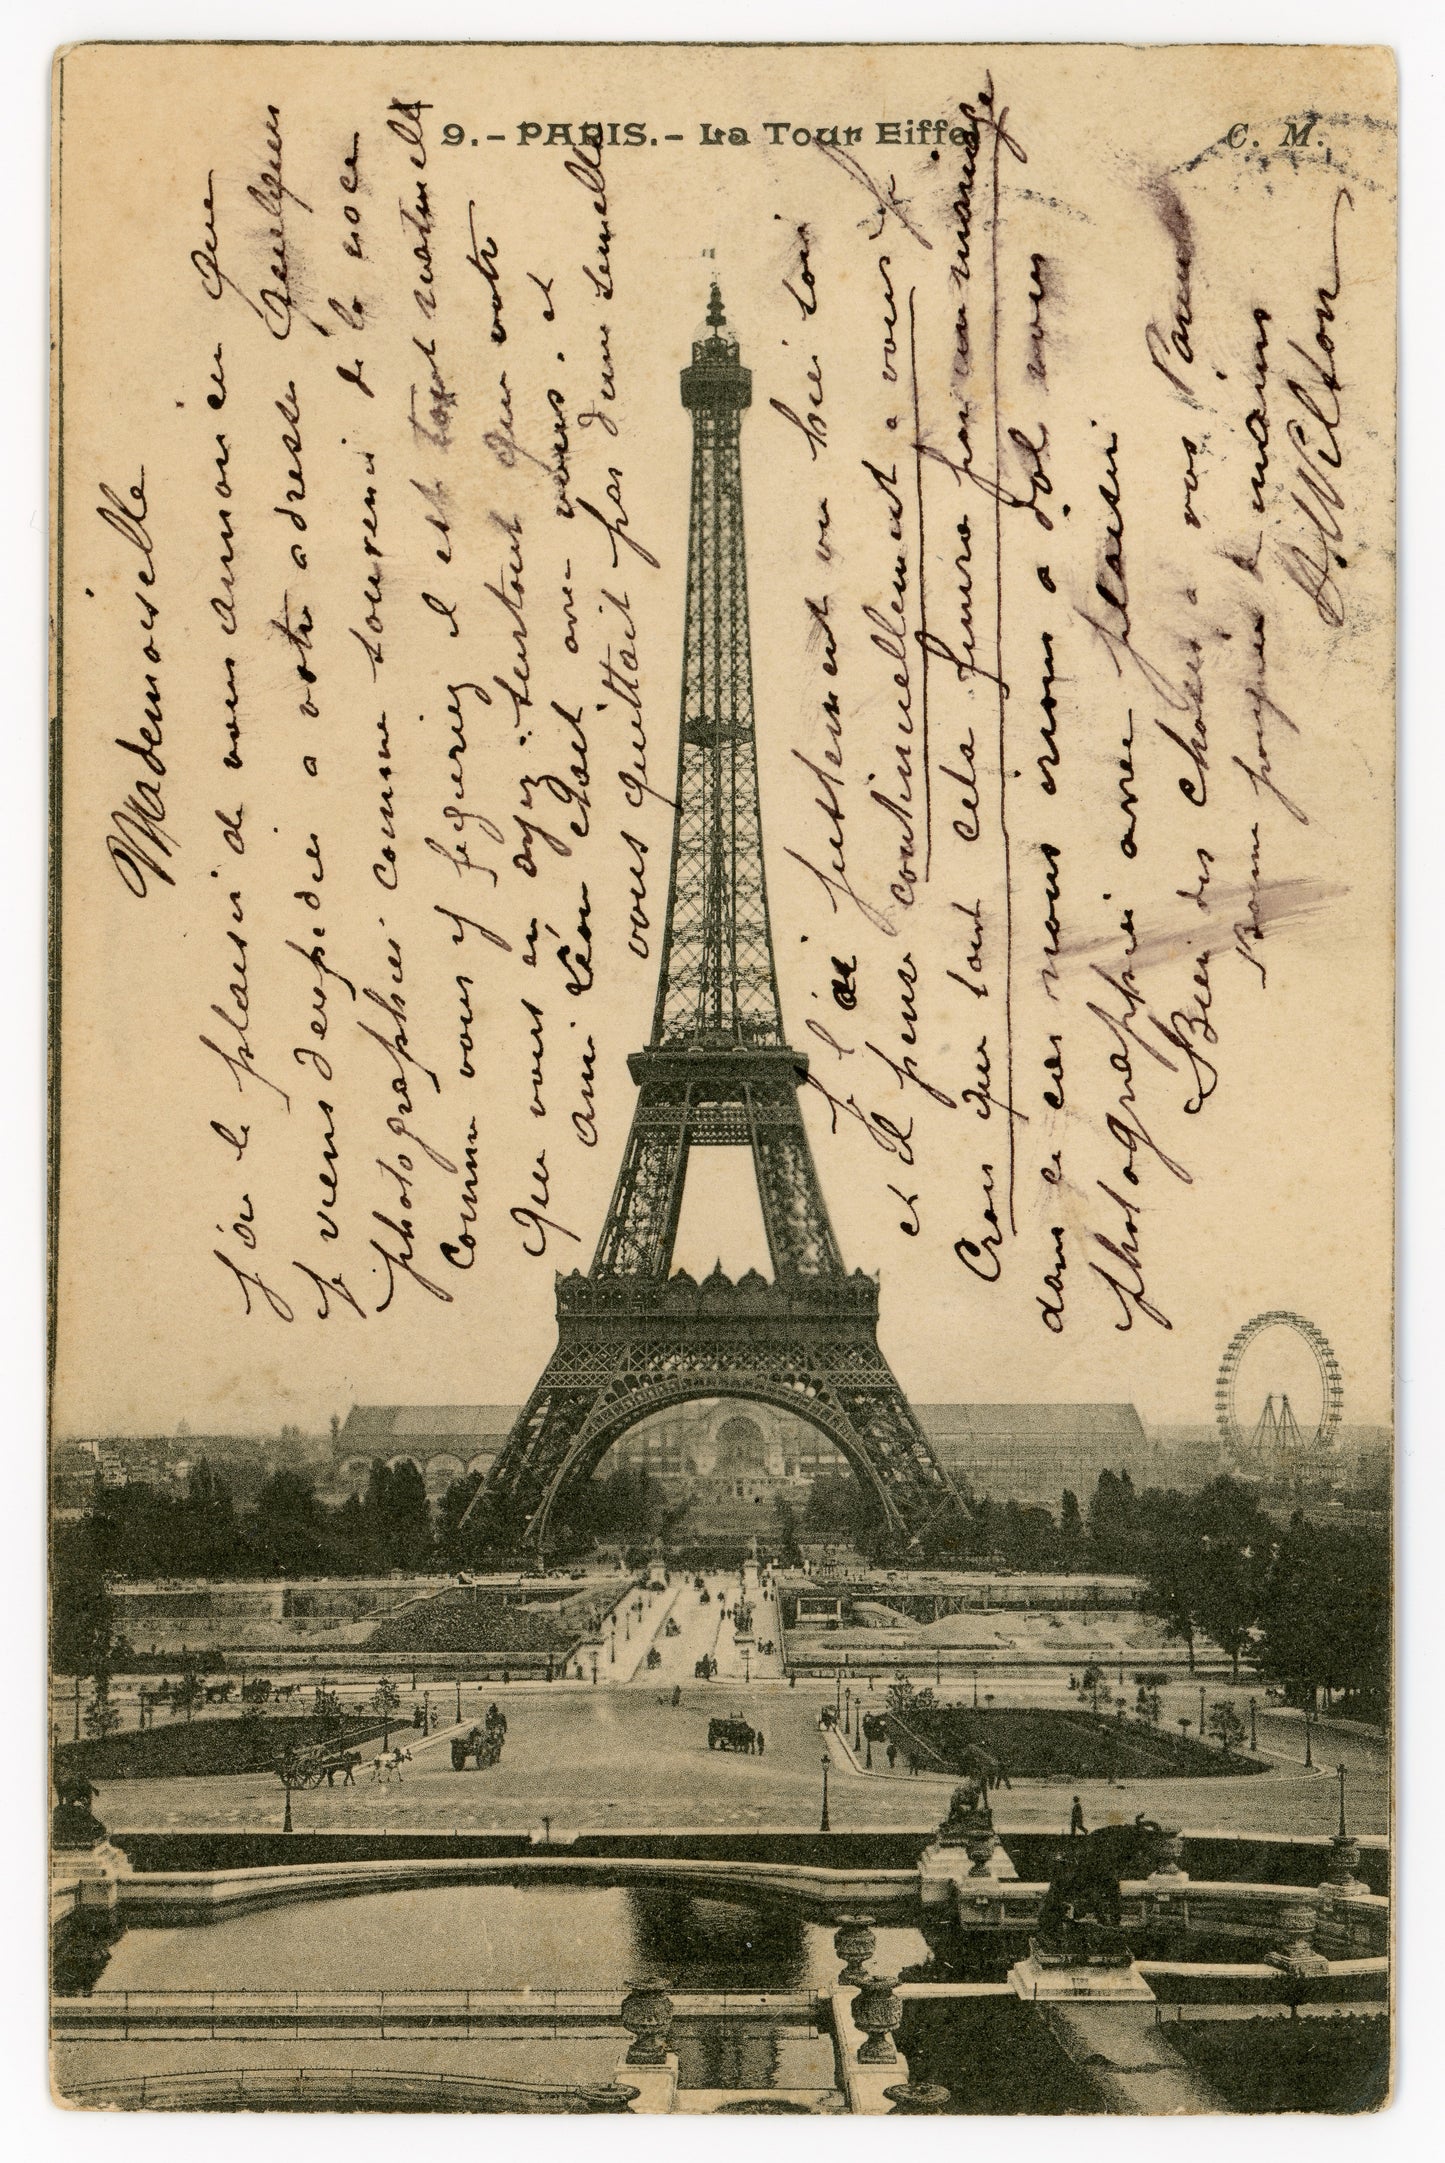 9. - PARIS. - La Tour Eiffel
C. M.
Mademoiselle
J'ai le plaisir de vous annoncer que
je viens d'expedier a votre adresse quelques
photographies comme souvenir de la noce
comme vous y figurez il est tout naturelle
que vous en ayez. surtout que votre
ami Léon etait avec vous. et
vous quittait pas d'une semelle
Je l'ai justement vu hier soir
et il pense continuellement a vous
Crois que tout cela finira par un mariage
dans ce cas nous irons a Dol vous
photographier avec plaisir
Bien des choses a vos Parents
Bonne poignée de mains
Wilson